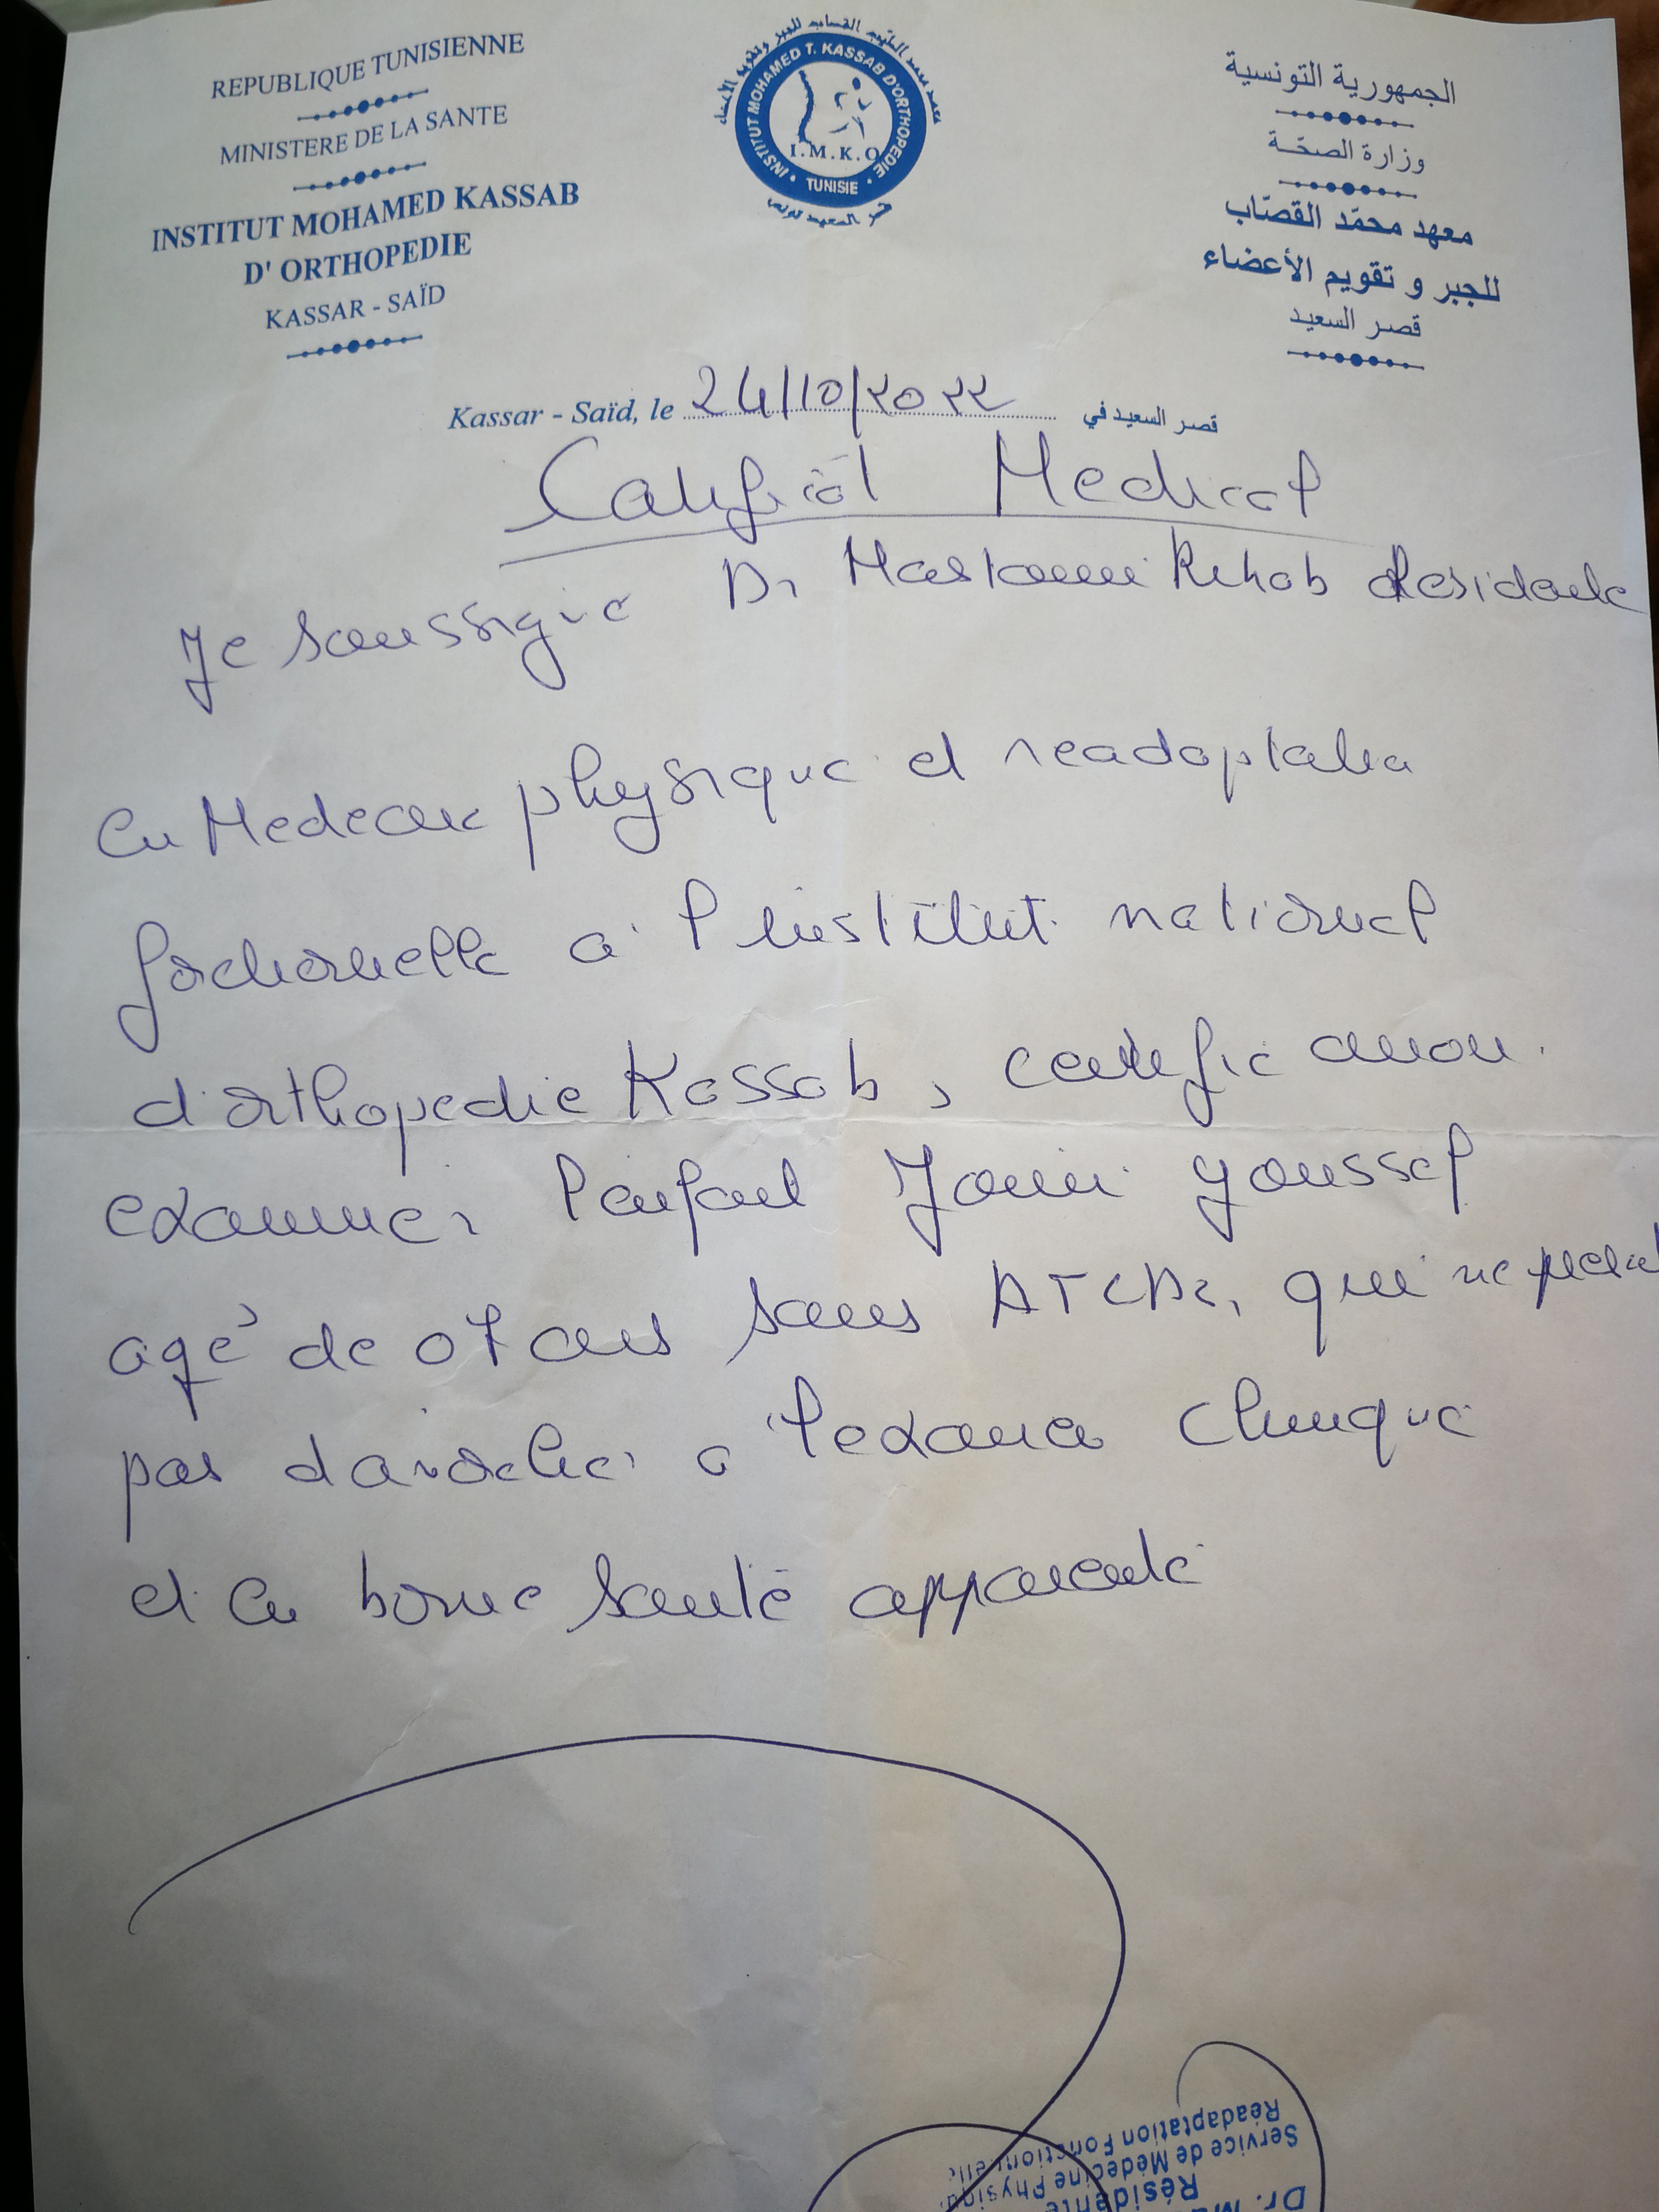 REPUBLIQUE TUNISIENNE
MINISTERE DE LA SANTE
INSTITUT MOHAMED KASSAB
D' ORTHOPEDIE
KASSAR - SAÏD
معهد محمد الطيب القصاب للجبر وتقويم الأعضاء
INSTITUT MOHAMED T. KASSAB D'ORTHOPEDIE
I.M.K.O
TUNISIE
قصر السعيد تونس
الجمهورية التونسية
وزارة الصحّة
معهد محمّد القصّاب
للجبر و تقويم الأعضاء
قصر السعيد
Kassar - Saïd, le 24/10/2022 قصر السعيد في
Certificat Medical
Je soussigne Dr Rihab Residente
en Medecine physique et readaptation
fonctionnelle a l'institut national
d'orthopedie Kassab, certifie avoir
examiner l'enfant Youssef
agé de 07 ans sans ATCDs, qui ne
pas d'anomalies a l'examen clinique
et en bonne santé apparente
Réadaptation Fonctionnelle
Service de Médecine Physique
Résidente
Dr.